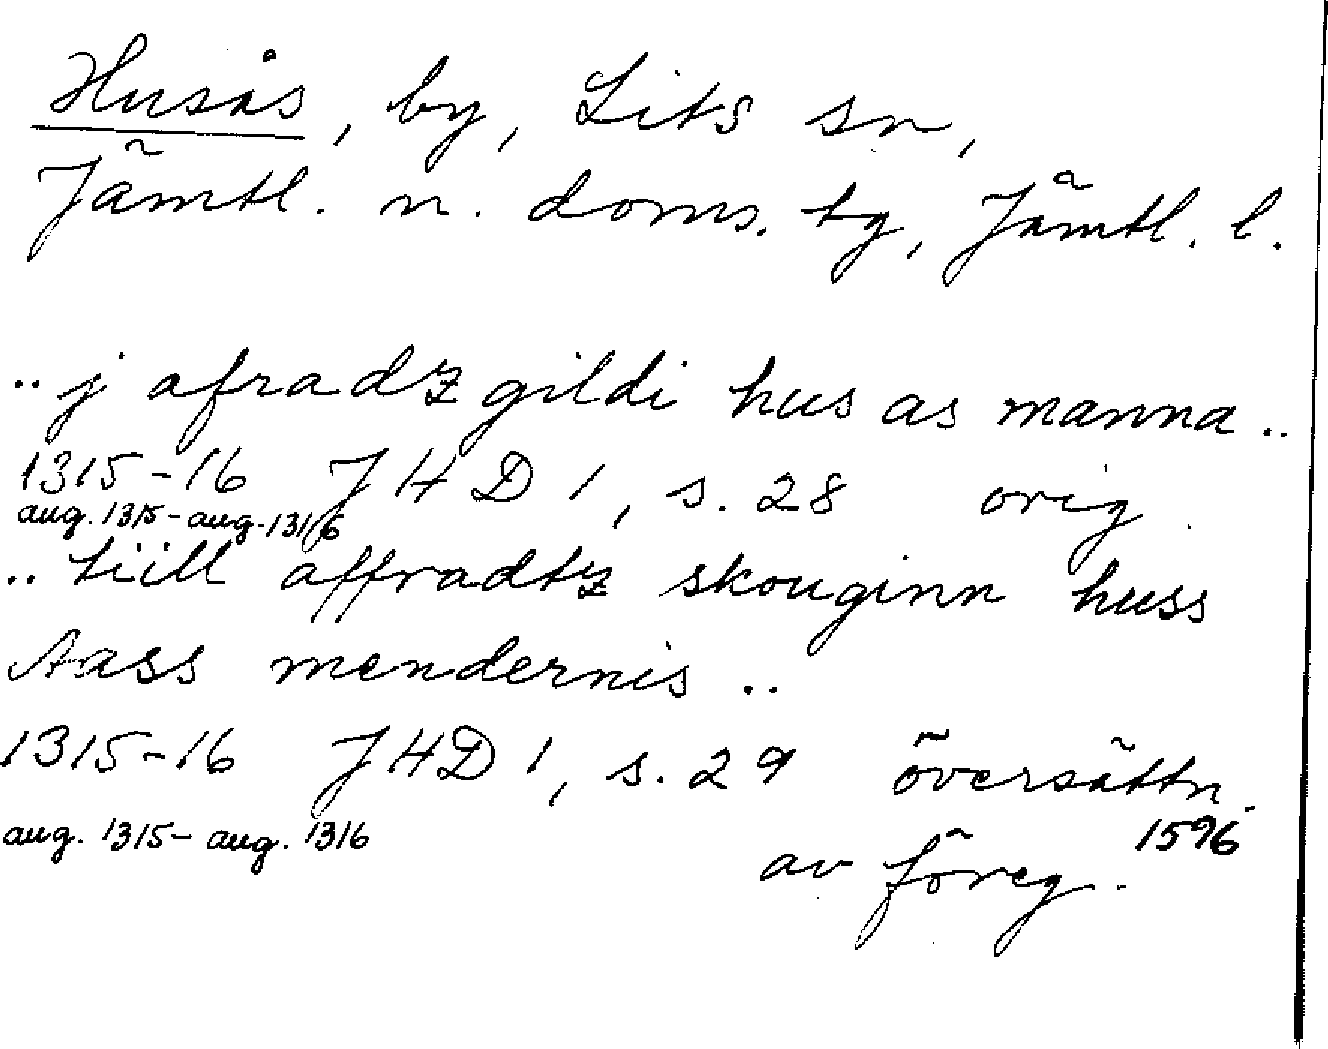 Husås, by, Lits sn,
Jämtl. n. doms. tg, Jämtl. l.
.. j afradz gildi hus as manna ..
1315-16 JHD 1, s. 28 orig.
aug. 1315 - aug. 1316
.. tiill affradtz skouginn huss
Aass mendernis ..
1315-16 JHD 1, s. 29 översättn.
aug. 1315 - aug. 1316 1596
av föreg.